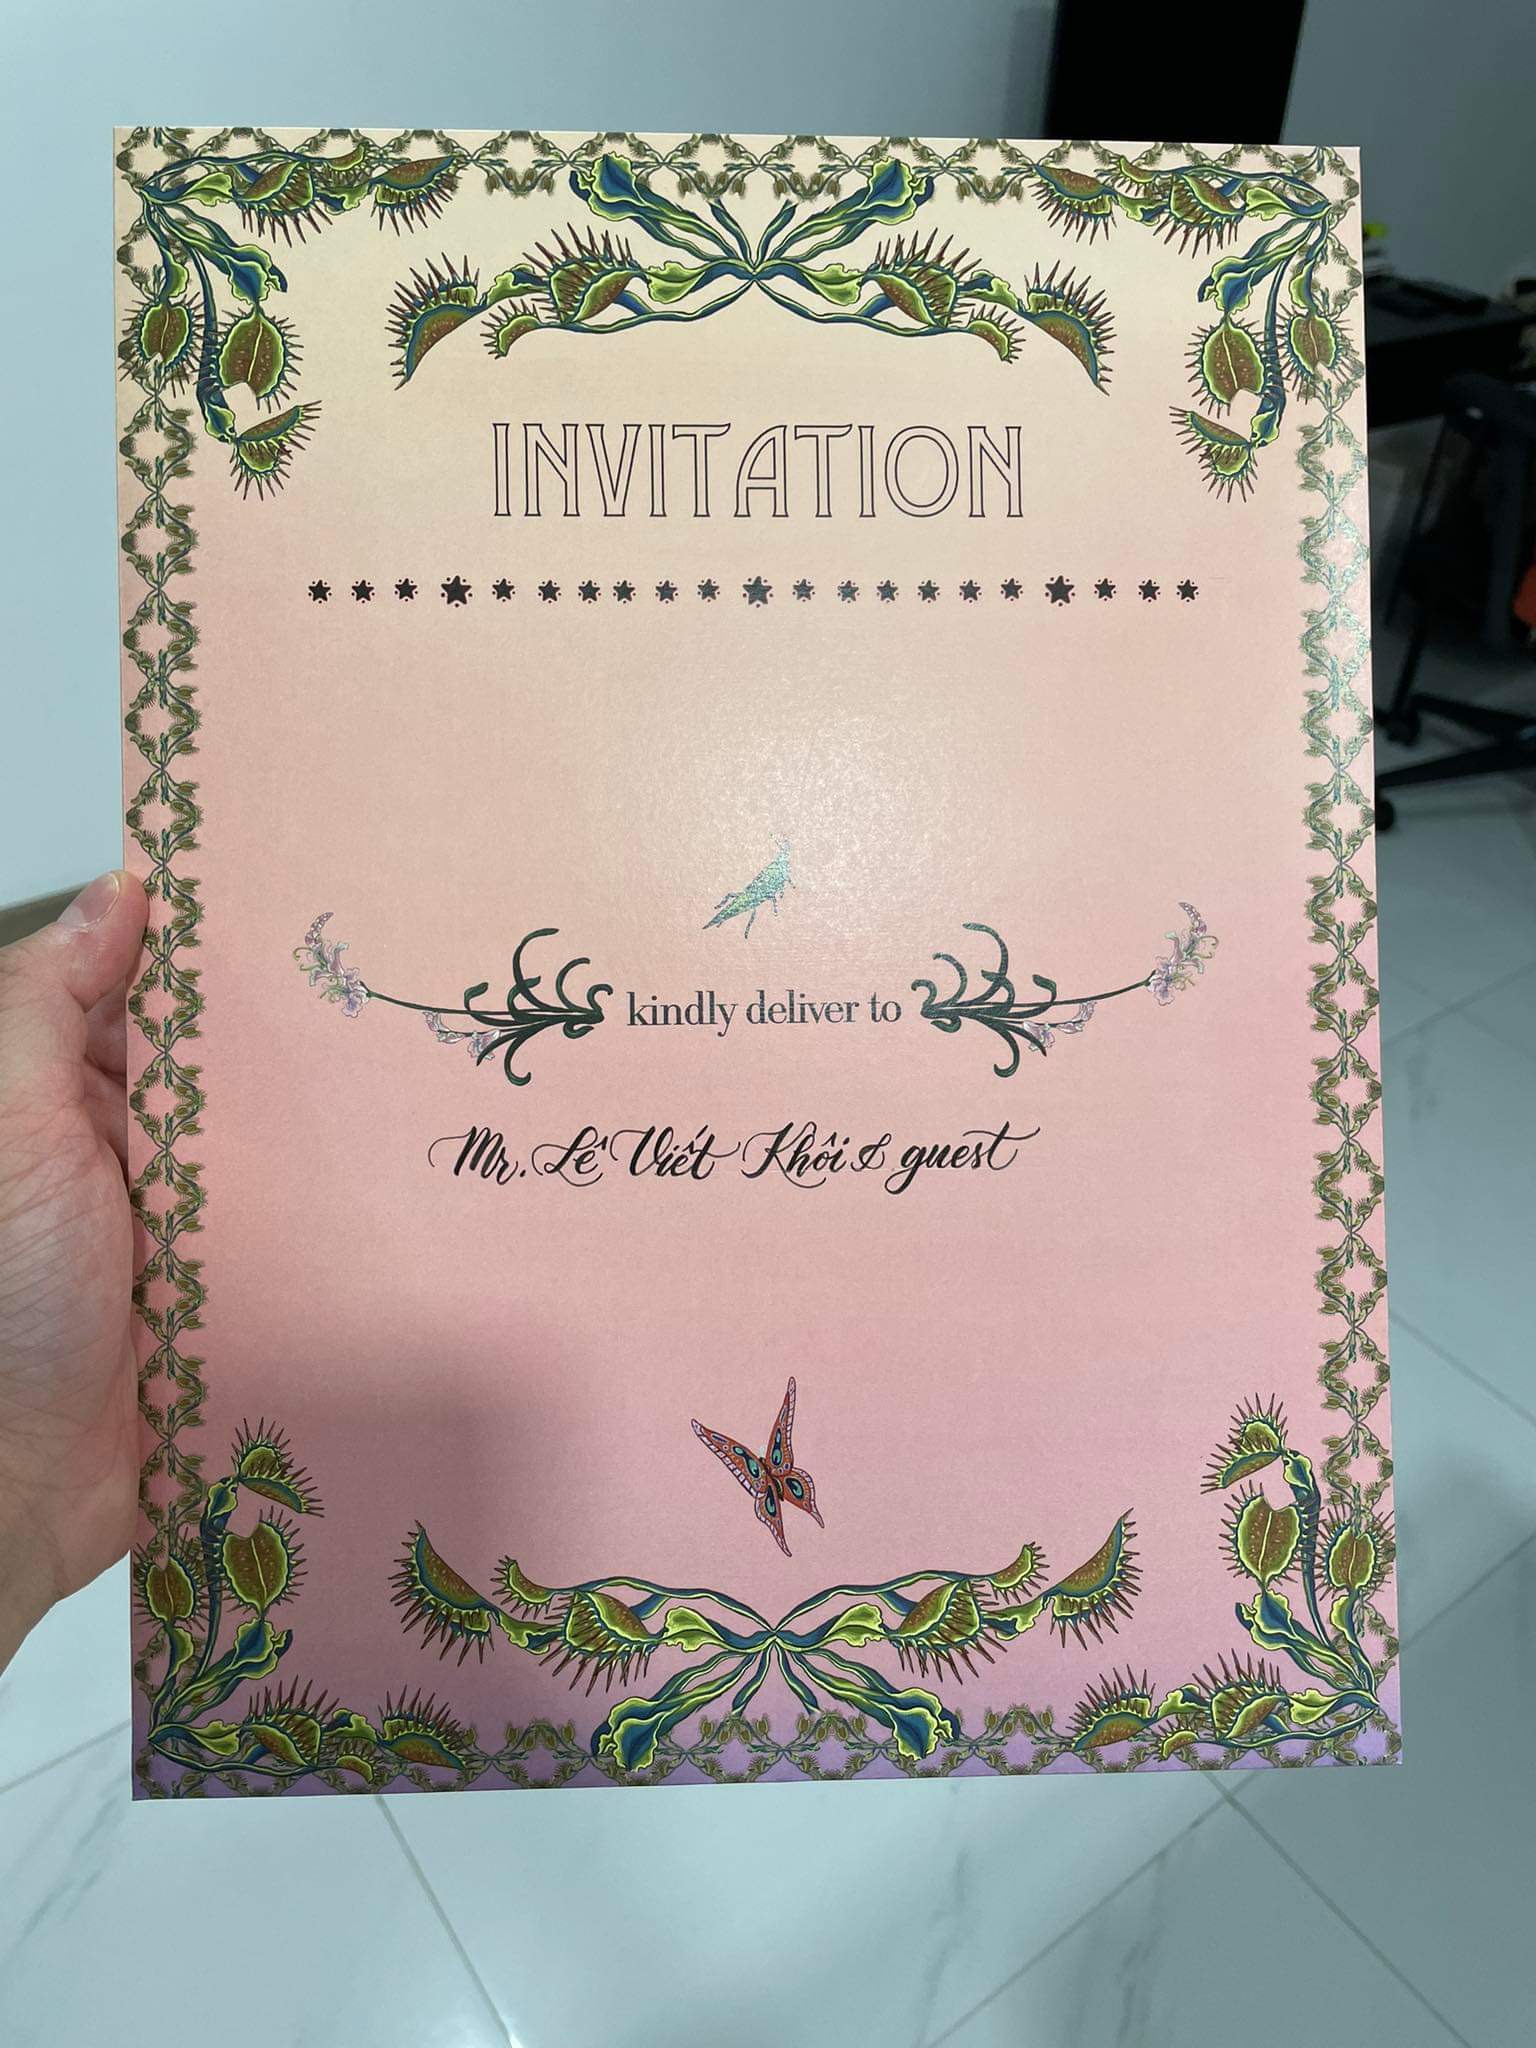 INVITATION
kindly deliver to
Mr. Lê Viết Khôi & guest